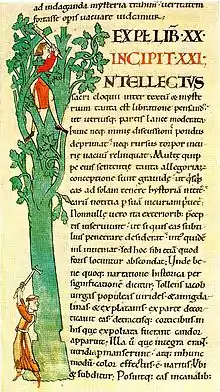 ad indaganda mysteria trahimur, veritatem
fortasse opis vacuare videamur.
EXPL LIB XX
INCIPIT XXI
NTELLECTUS
sacri eloquii inter textū & myste
rium tanta est libratione pensand'
ut utriusq; partis lance moderata
hunc neq; nimię discussionis pondus
deprimat neq; rursus torpor incu
rię vacuū relinquat. Multę quip
pe eius sententię tanta allegoriarū
conceptione sunt gravidę ut qsqs
eas ad solam tenere hystoriā
earū noticia p suā incuriam
Nonnullę vero ita exteriorib; pcep
tis inserviunt ut si quis eas subti
lius penetrare desiderat intus quidē
nil inveniat sed hoc sibi etiā quod
foris locuntur abscondat. Unde be
ne quoq; narratione historica per
significationē dicitur. Tollens iacob
virgas populeas virides & amigda
linas & ex platanis ex parte decor
ticavit eas detractisq; corticibus in
his quę expoliata fuerant candor
apparuit. Illa v quę integra erant
viridia pmanserunt atq; inhunc
modū color effectus ē varius. Ubi
& subditur. Posuitq; eas in canalib;